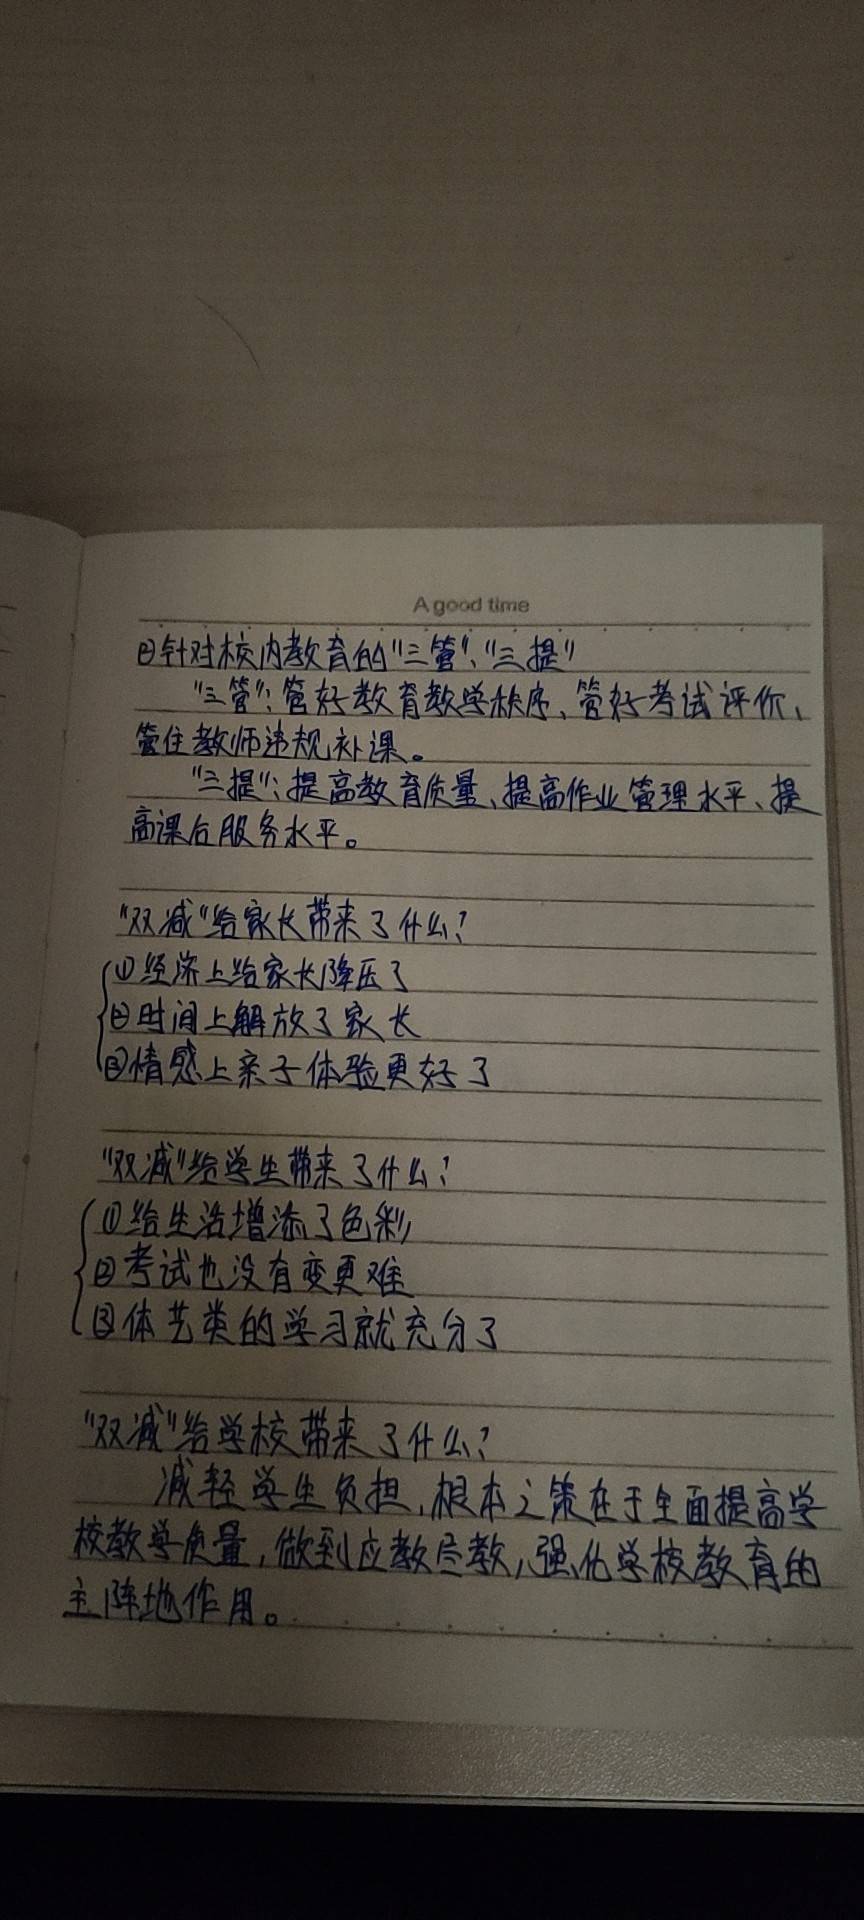 A good time
②针对校内教育的"三管"、"三提"
"三管"：管好教育教学秩序、管好考试评价、
管住教师违规补课。
"三提"：提高教育质量、提高作业管理水平、提
高课后服务水平。
"双减"给家长带来了什么？
①经济上给家长降压了
②时间上解放了家长
③情感上亲子体验更好了
"双减"给学生带来了什么？
①给生活增添了色彩
②考试也没有变更难
③体艺类的学习就充分了
"双减"给学校带来了什么？
减轻学生负担，根本之策在于全面提高学
校教学质量，做到应教尽教，强化学校教育的
主阵地作用。